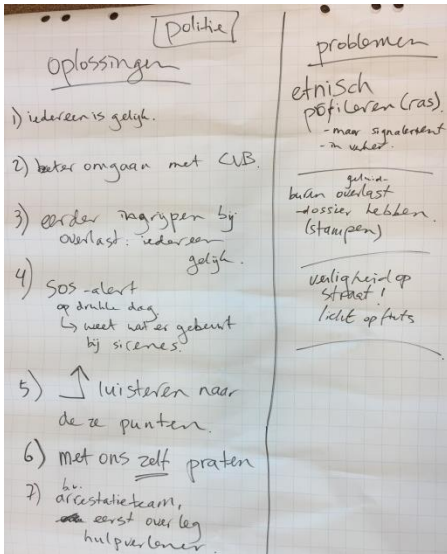 politie
oplossingen
1) iedereen is gelijk.
2) beter omgaan met CLB.
3) eerder ingrijpen bij
overlast: iedereen
gelijk.
4) SOS-alert
op drukke dag
↳ weet wat er gebeurt
bij sirenes.
5) ↑ luisteren naar
deze punten.
6) met ons zelf praten
7) bv.
arrestatieteam,
eerst overleg
hulpverlener.
problemen
etnisch
profileren (ras).
- maar signalement
geluid-
buren overlast
- dossier hebben.
(stampen)
veiligheid op
straat!
licht op fiets